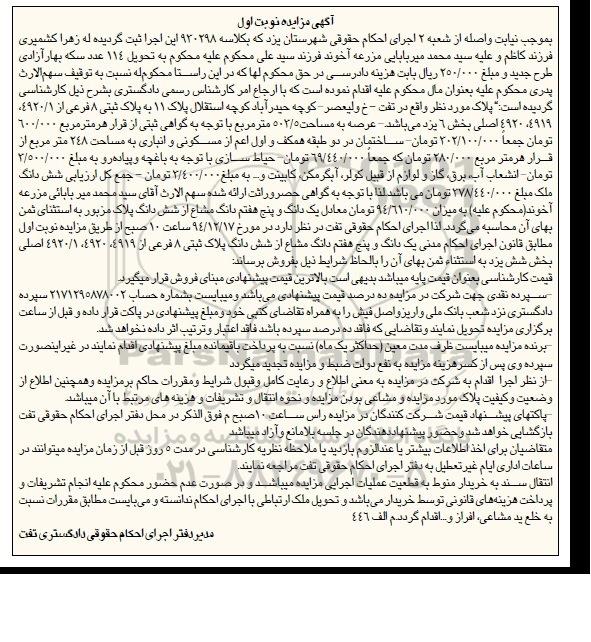 آگهی مزایده نوبت اول
بموجب نیابت واصله از شعبه ۲ اجرای احکام حقوقی شهرستان یزد که بکلاسه ۹۳۰۲۹۸ این اجرا ثبت گردیده له زهرا کشمیری
فرزند کاظم و علیه سید محمد میربابایی مزرعه آخوند فرزند سید علی محکوم علیه محکوم به تحویل ۱۱۴ عدد سکه بهار آزادی
طرح جدید و مبلغ ۲۵۰/۰۰۰ ریال بابت هزینه دادرسی در حق محکوم لها که در این راستا محکوم‌له نسبت به توقیف سهم‌الارث
پدری محکوم علیه بعنوان مال محکوم علیه اقدام نموده است که با ارجاع امر کارشناس رسمی دادگستری بشرح ذیل کارشناسی
گردیده است: "پلاک مورد نظر واقع در تفت – خ ولیعصر – کوچه حیدرآباد کوچه استقلال پلاک ۱۱ به پلاک ثبتی ۸ فرعی از ۴۹۲۰/۱،
۴۹۱۹، ۴۹۲۰ اصلی بخش ۶ یزد می‌باشد. – عرصه به مساحت ۵۰۲/۵ مترمربع با توجه به گواهی ثبتی از قرار هر مترمربع ۶۰۰/۰۰۰
تومان جمعاً ۳۰۲/۱۰۰/۰۰۰ تومان – ساختمان در دو طبقه همکف و اول اعم از مسکونی و انباری به مساحت ۲۴۸ متر مربع از
قرار هر متر مربع ۲۸۰/۰۰۰ تومان که جمعاً ۶۹/۴۴۰/۰۰۰ تومان – حیاط سازی با توجه به باغچه و پیاده‌رو به مبلغ ۲/۵۰۰/۰۰۰
تومان – انشعاب آب، برق، گاز و لوازم از قبیل کولر، آبگرمکن، کابینت و... به مبلغ ۲/۴۰۰/۰۰۰ تومان – جمع کل ارزیابی شش دانگ
ملک مبلغ ۳۷۸/۴۴۰/۰۰۰ تومان می باشد لذا با توجه به گواهی حصر وراثت ارائه شده سهم الارث آقای سید محمد میر بابائی مزرعه
آخوند (محکوم علیه) به میزان ۹۴/۶۱۰/۰۰۰ تومان معادل یک دانگ و پنج هفتم دانگ مشاع از شش دانگ پلاک مزبور به استثنای ثمن
بهای آن محاسبه می‌گردد. لذا اجرای احکام حقوقی تفت در نظر دارد در مورخ ۹۴/۱۲/۱۷ ساعت ۱۰ صبح از طریق مزایده نوبت اول
مطابق قانون اجرای احکام مدنی یک دانگ و پنج هفتم دانگ مشاع از شش دانگ پلاک ثبتی ۸ فرعی از ۴۹۱۹، ۴۹۲۰، ۴۹۲۰/۱ اصلی
بخش شش یزد به استثناء ثمن بهای آن را بالحاظ شرایط ذیل بفروش برساند:
قیمت کارشناسی بعنوان قیمت پایه میباشد بدیهی است بالاترین قیمت پیشنهادی مبنای فروش قرار میگیرد.
–سپرده نقدی جهت شرکت در مزایده ده درصد قیمت پیشنهادی می‌باشد و میبایست بشماره حساب ۲۱۷۱۲۹۵۸۷۸۰۰۲ سپرده
دادگستری نزد شعب بانک ملی واریز و اصل فیش را به همراه تقاضای کتبی خود و مبلغ پیشنهادی در پاکت قرار داده و قبل از ساعت
برگزاری مزایده تحویل نمایند و تقاضایی که فاقد ده درصد سپرده باشد فاقد اعتبار و ترتیب اثر داده نخواهد شد.
–برنده مزایده میبایست ظرف مدت معین (حداکثر یک ماه) نسبت به پرداخت باقیمانده مبلغ پیشنهادی اقدام نمایند در غیر اینصورت
سپرده وی پس از کسر هزینه مزایده به نفع دولت ضبط و مزایده تجدید میگردد
–از نظر اجرا اقدام به شرکت در مزایده به معنی اطلاع و رعایت کامل و قبول شرایط و مقررات حاکم بر مزایده و همچنین اطلاع از
وضعیت و کیفیت پلاک مورد مزایده و مشاعی بودن مزایده و نحوه انتقال و تشریفات و هزینه های مرتبط با آن میباشد.
–پاکتهای پیشنهاد قیمت شرکت کنندگان در مزایده راس ساعت ۱۰ صبح م فوق الذکر در محل دفتر اجرای احکام حقوقی تفت
بازگشایی خواهد شد و حضور پیشنهاددهندگان در جلسه بلامانع و آزاد میباشد
متقاضیان برای اخذ اطلاعات بیشتر یا عندالزوم بازدید یا ملاحظه نظریه کارشناسی در مدت ۵ روز قبل از زمان مزایده میتوانند در
ساعات اداری ایام غیر تعطیل به دفتر اجرای احکام حقوقی تفت مراجعه نمایند.
انتقال سند به خریدار منوط به قطعیت عملیات اجرایی مزایده میباشد و در صورت عدم حضور محکوم علیه انجام تشریفات و
پرداخت هزینه‌های قانونی توسط خریدار می‌باشد و تحویل ملک ارتباطی با اجرای احکام نداشته و می‌بایست مطابق مقررات نسبت
به خلع ید مشاعی، افراز و... اقدام گردد. م الف ۴۴۶
مدیر دفتر اجرای احکام حقوقی دادگستری تفت